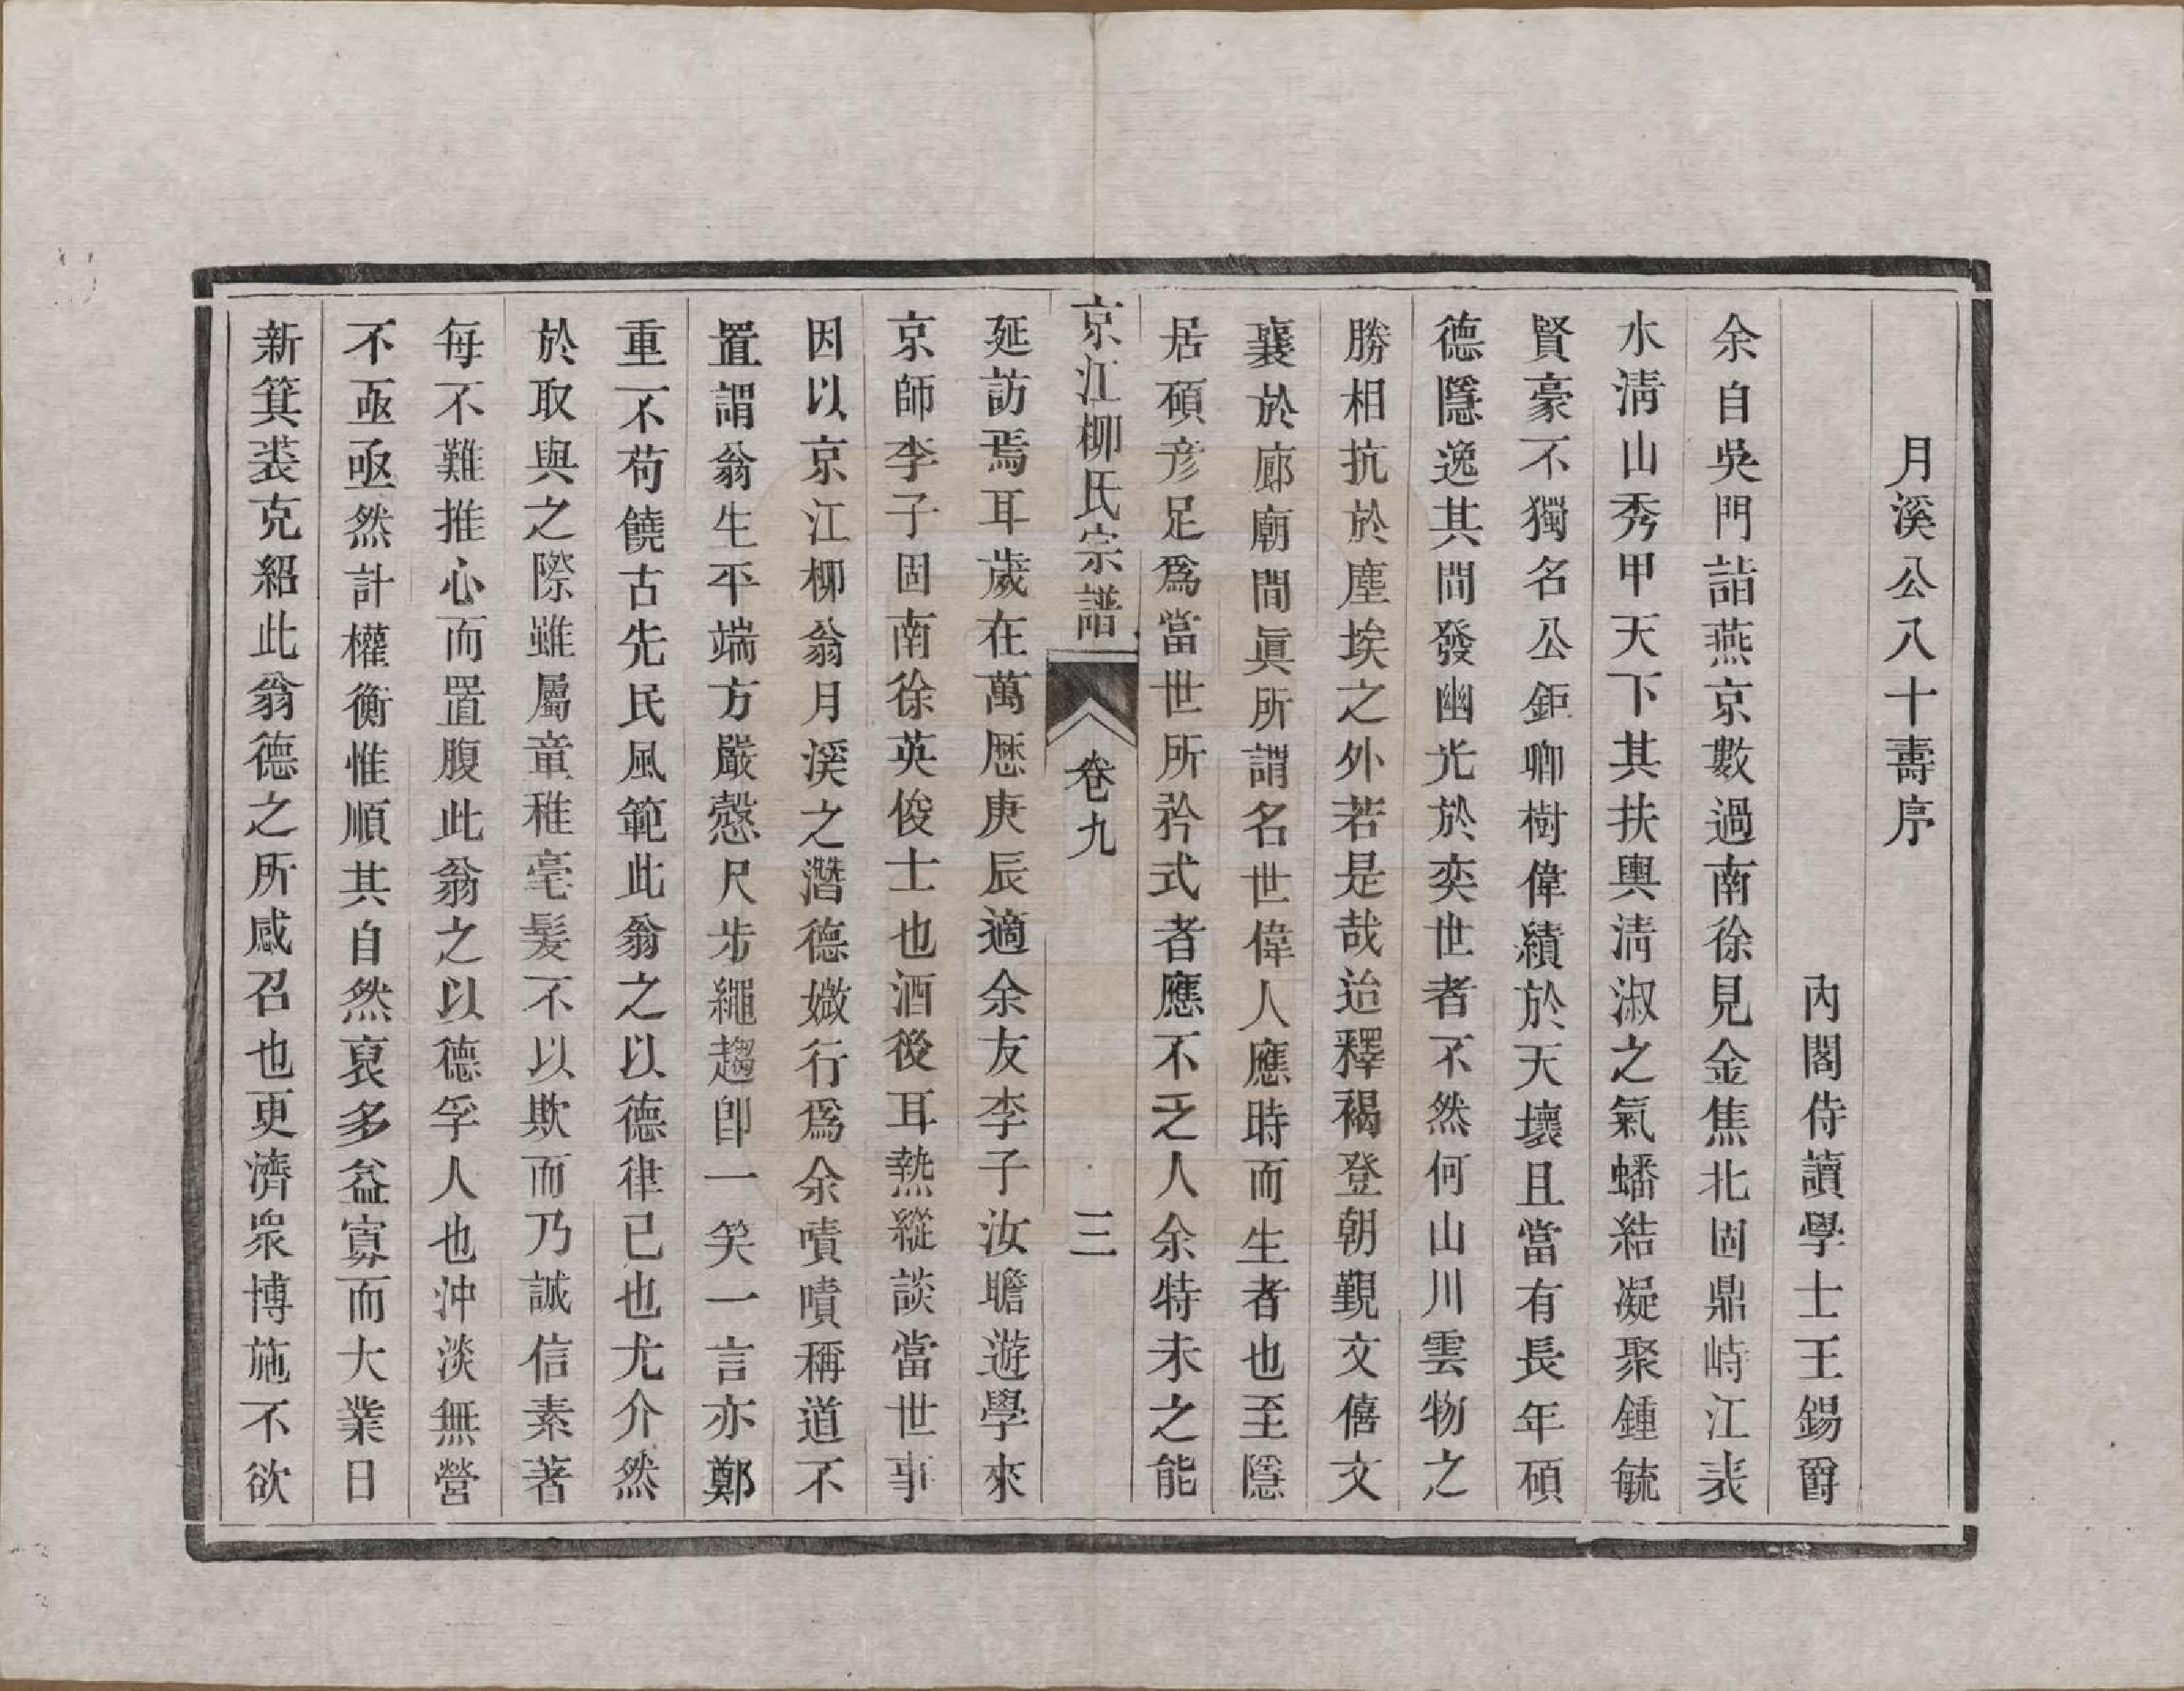 月溪公八十壽序
內閣侍讀學士王錫爵
余自吳門詣燕京數過南徐見金焦北固鼎峙江表
水淸山秀甲天下其扶輿淸淑之氣蟠結凝聚鍾毓
賢豪不獨名公鉅卿樹偉績於天壤且當有長年碩
德隱逸其間發幽光於奕世者不然何山川雲物之
勝相抗於塵埃之外若是哉迨釋褐登朝覲文僖文
襄於廊廟間眞所謂名世偉人應時而生者也至隱
居碩彦足爲當世所矜式者應不乏人余特未之能
京江柳氏宗譜 卷九 三
延訪焉耳歲在萬歴庚辰適余友李子汝瞻遊學來
京師李子固南徐英俊士也酒後耳熱縱談當世事
因以京江柳翁月溪之潛德媺行爲余嘖嘖稱道不
置謂翁生平端方嚴愨尺步繩趨卽一笑一言亦鄭
重不苟饒古先民風範此翁之以德律已也尤介然
於取與之際雖屬童稚毫髮不以欺而乃誠信素著
每不難推心而置腹此翁之以德孚人也沖淡無營
不亟亟然計權衡惟順其自然裒多益寡而大業日
新箕裘克紹此翁德之所感召也更濟衆博施不欲